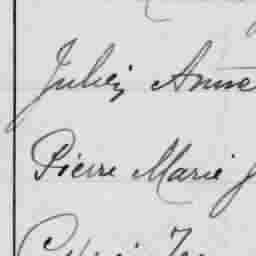 Julien Anne
Pierre Marie J